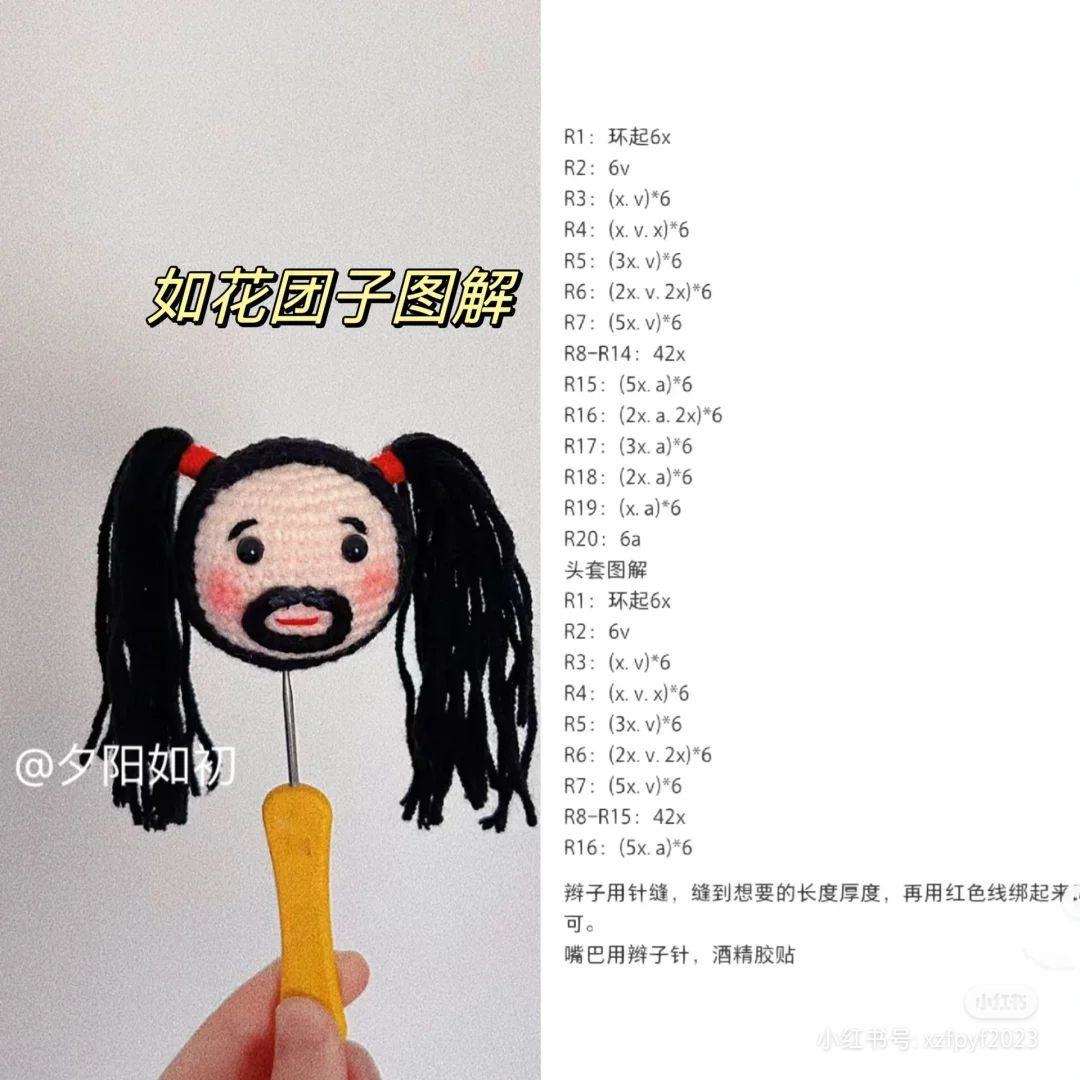 如花团子图解
@夕阳如初
R1：环起6x
R2：6v
R3：(x.v)*6
R4：(x.v.x)*6
R5：(3x.v)*6
R6：(2x.v.2x)*6
R7：(5x.v)*6
R8-R14：42x
R15：(5x.a)*6
R16：(2x.a.2x)*6
R17：(3x.a)*6
R18：(2x.a)*6
R19：(x.a)*6
R20：6a
头套图解
R1：环起6x
R2：6v
R3：(x.v)*6
R4：(x.v.x)*6
R5：(3x.v)*6
R6：(2x.v.2x)*6
R7：(5x.v)*6
R8-R15：42x
R16：(5x.a)*6
辫子用针缝，缝到想要的长度厚度，再用红色线绑起来
可。
嘴巴用辫子针，酒精胶贴
小红书
小红书号: xzfpyf2023